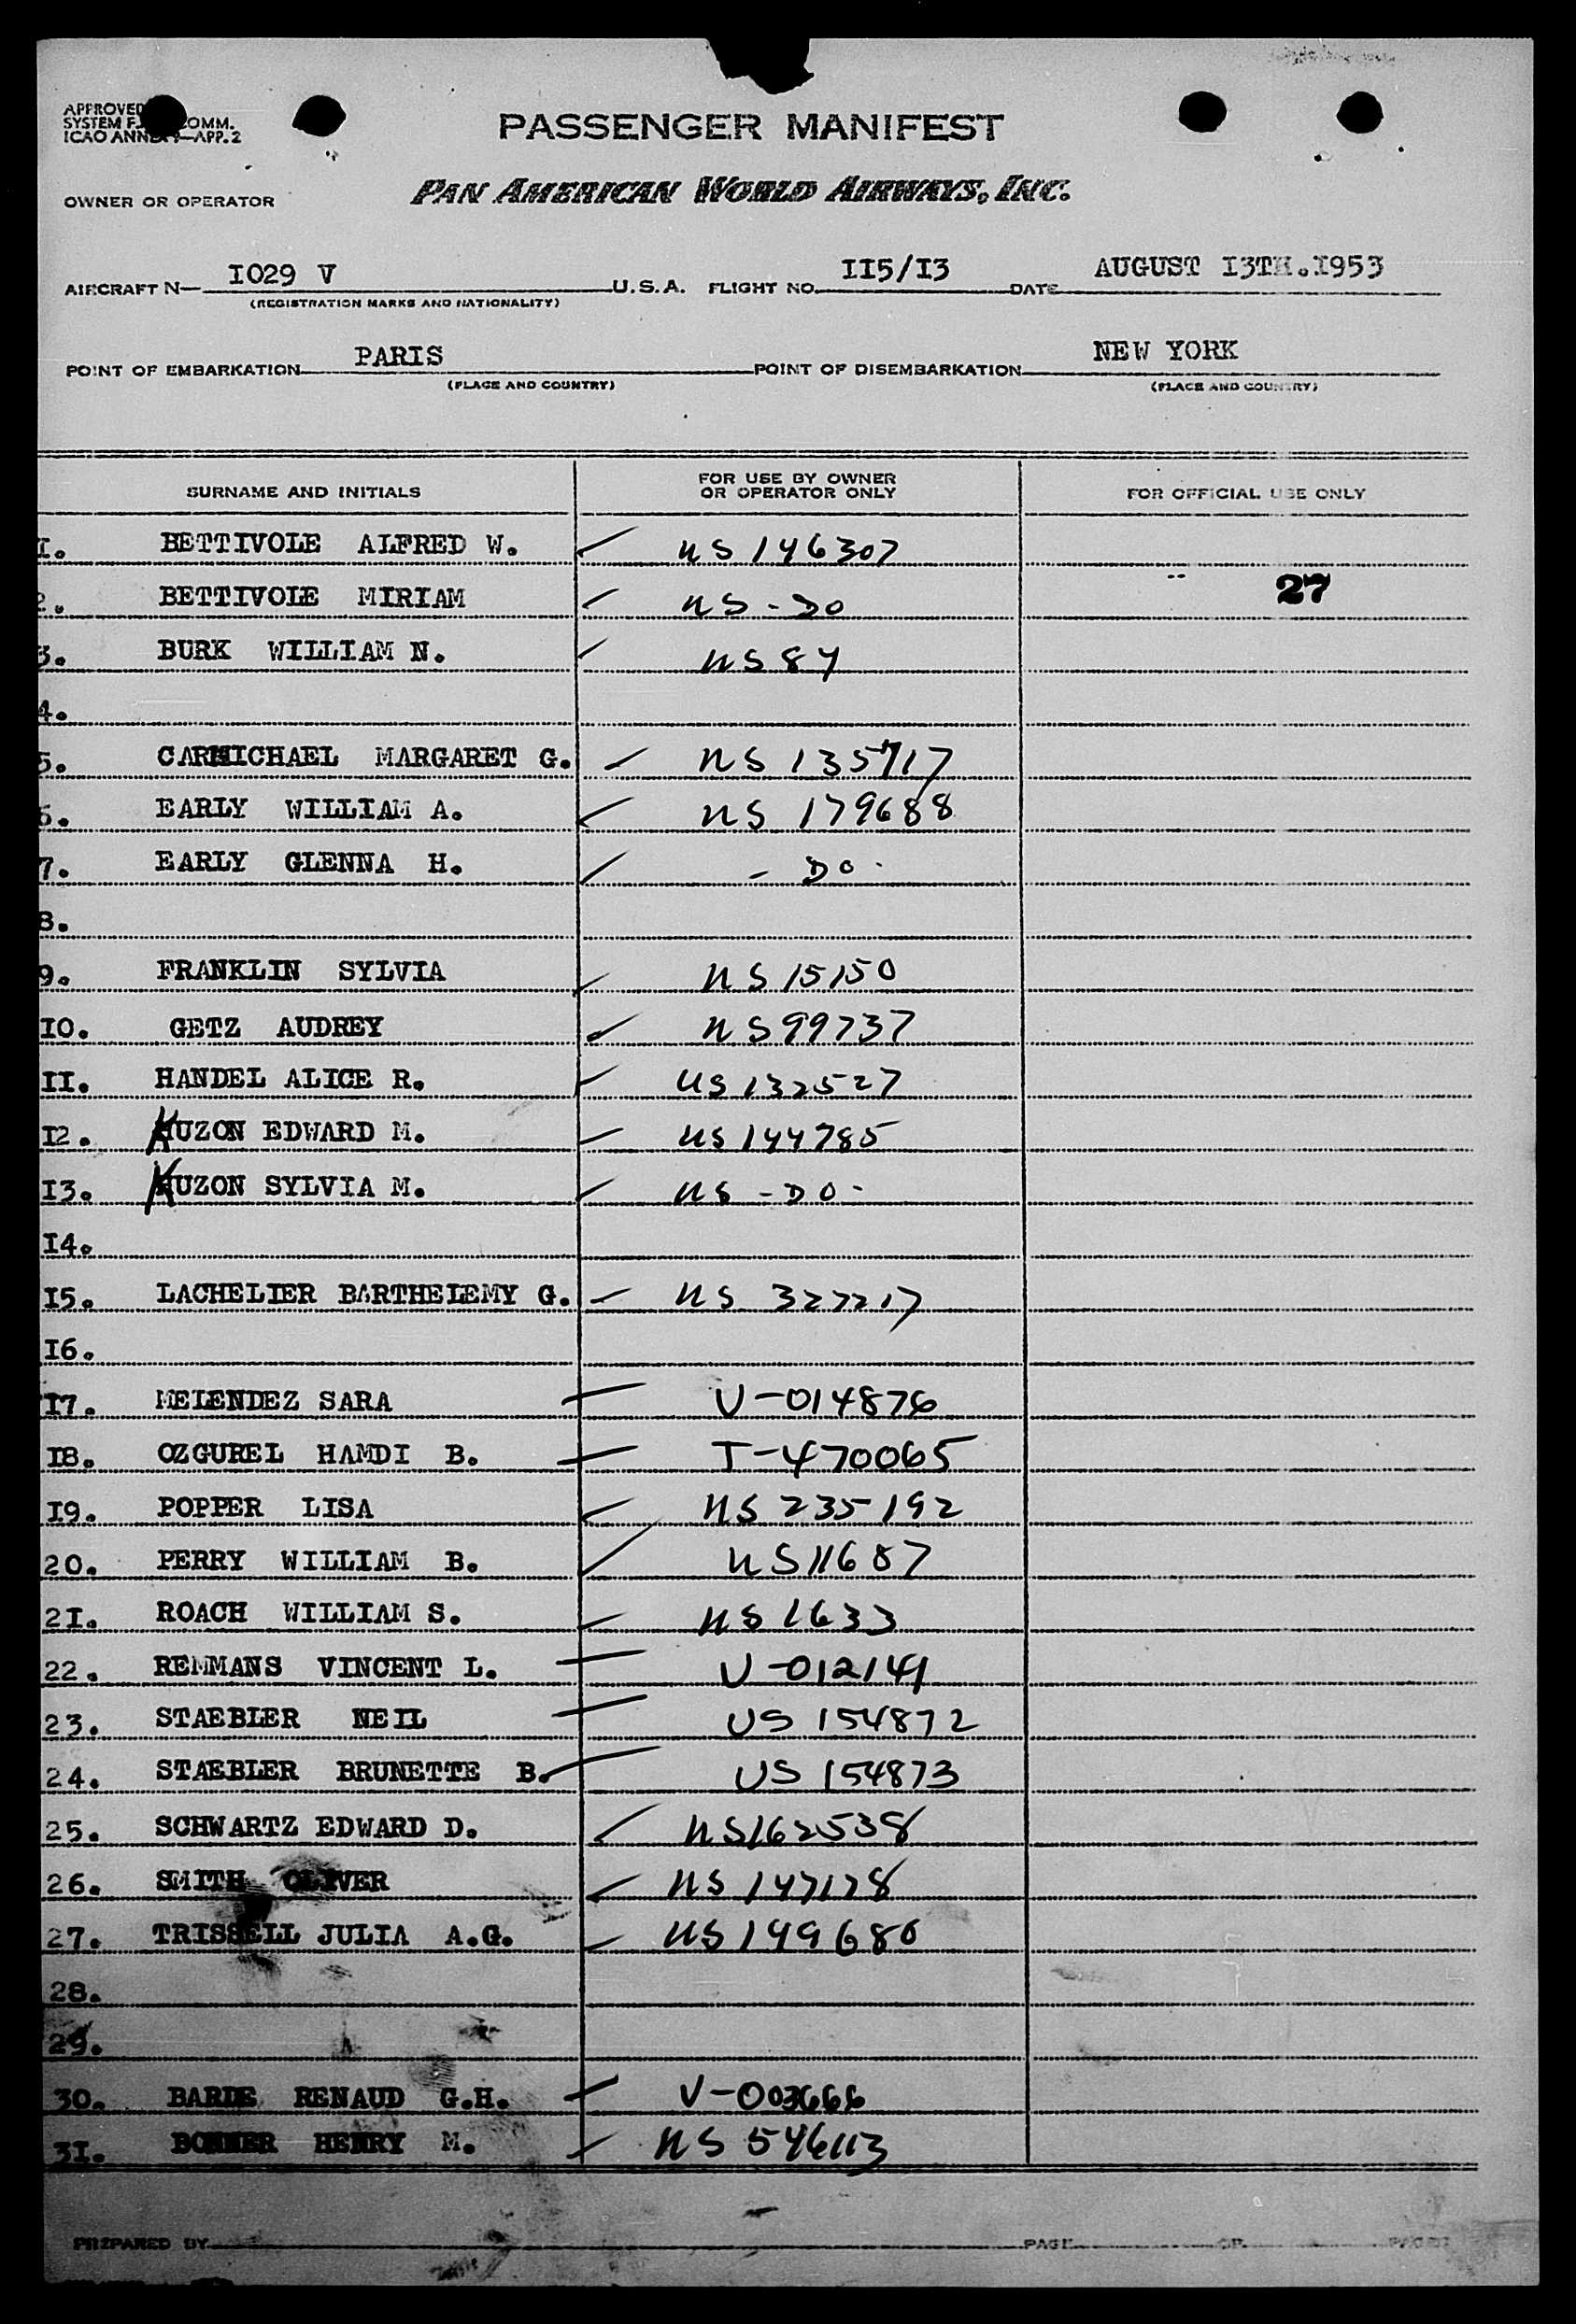 APPROVED
SYSTEM F. COMM.
ICAO ANNEX 9—APP. 2
PASSENGER MANIFEST
OWNER OR OPERATOR PAN AMERICAN WORLD AIRWAYS, INC.
AIRCRAFT N— I029 V U.S.A. FLIGHT NO. II5/I3 DATE AUGUST I3TH.I953
(REGISTRATION MARKS AND NATIONALITY)
POINT OF EMBARKATION PARIS POINT OF DISEMBARKATION NEW YORK
(PLACE AND COUNTRY) (PLACE AND COUNTRY)
SURNAME AND INITIALS FOR USE BY OWNER OR OPERATOR ONLY FOR OFFICIAL USE ONLY
I. BETTIVOLE ALFRED W. US 146307
2. BETTIVOLE MIRIAM US - DO 27
3. BURK WILLIAM N. US 84
4.
5. CARMICHAEL MARGARET G. US 135717
6. EARLY WILLIAM A. US 179688
7. EARLY GLENNA H. - DO -
8.
9. FRANKLIN SYLVIA US 15150
I0. GETZ AUDREY US 99737
II. HANDEL ALICE R. US 132527
I2. KUZON EDWARD M. US 144785
I3. KUZON SYLVIA M. US - DO -
I4.
I5. LACHELIER BARTHELEMY G. US 327217
I6.
I7. MELENDEZ SARA V-014876
I8. OZGUREL HAMDI B. T-470065
I9. POPPER LISA US 235192
20. PERRY WILLIAM B. US 11687
2I. ROACH WILLIAM S. US 1633
22. REMMANS VINCENT L. V-012141
23. STAEBLER NEIL US 154872
24. STAEBLER BRUNETTE B. US 154873
25. SCHWARTZ EDWARD D. US 162538
26. SMITH OLIVER US 147178
27. TRISSELL JULIA A.G. US 149680
28.
29.
30. BARDE RENAUD G.H. V-003666
3I. BONNER HENRY M. US 546113
PREPARED BY PAGE OF PAGES